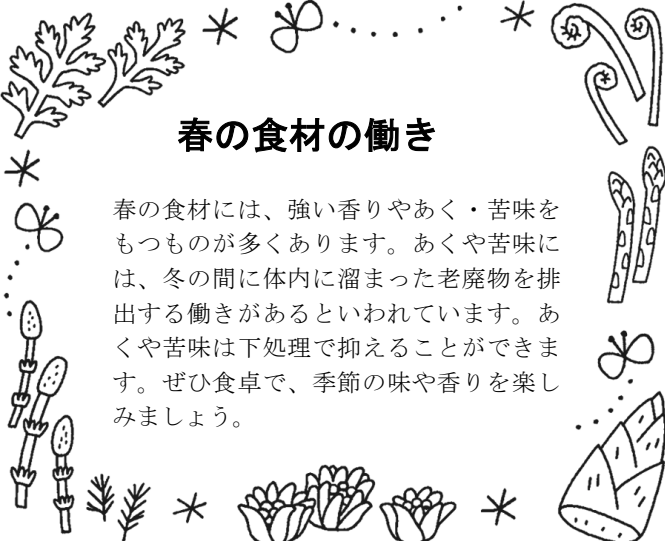 春の食材の働き
春の食材には、強い香りやあく・苦味を
もつものが多くあります。あくや苦味に
は、冬の間に体内に溜まった老廃物を排
出する働きがあるといわれています。あ
くや苦味は下処理で抑えることができま
す。ぜひ食卓で、季節の味や香りを楽し
みましょう。